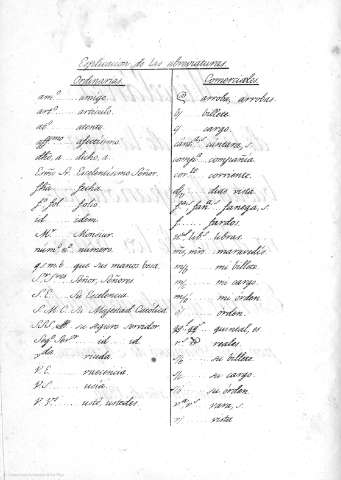 Esplicación de las abreviaturas
Ordinarias.
am.º amigo.
art.º artículo.
at.º atento
affmo afectísimo
dho, a dicho, a.
Emo Sr. Escelentísimo Señor.
fha fecha.
f.º fol. folio
id idem
M.r Monsiur.
num.º n.º número.
q s m b que sus manos besa.
S.r S.res Señor, Señores
S. E. Su Escelencia.
S. M. C. Su Magestad Católica.
S.S.S. su seguro servidor
Seg.º Serv.or id id
v.da viuda
V. E. vuecencia.
V. S. usía
V. V.s usté, ustedes.
Comerciales.
@ arroba, arrobas.
b/ billete
c/ cargo.
cánt.s cántara, s.
comp.a compañía.
cor.te corriente.
d/v dias vista.
f.as fan.s fanega, s.
f. fardos.
libras.
ms, mrs. maravedis.
m/b mi billete.
m/c mi cargo.
m/o mi órden
o/ órden.
qq quintal, es
r.s reales.
s/b su billete.
s/c su cargo.
s/o su órden
v.a v.s vara, s
v/ vista